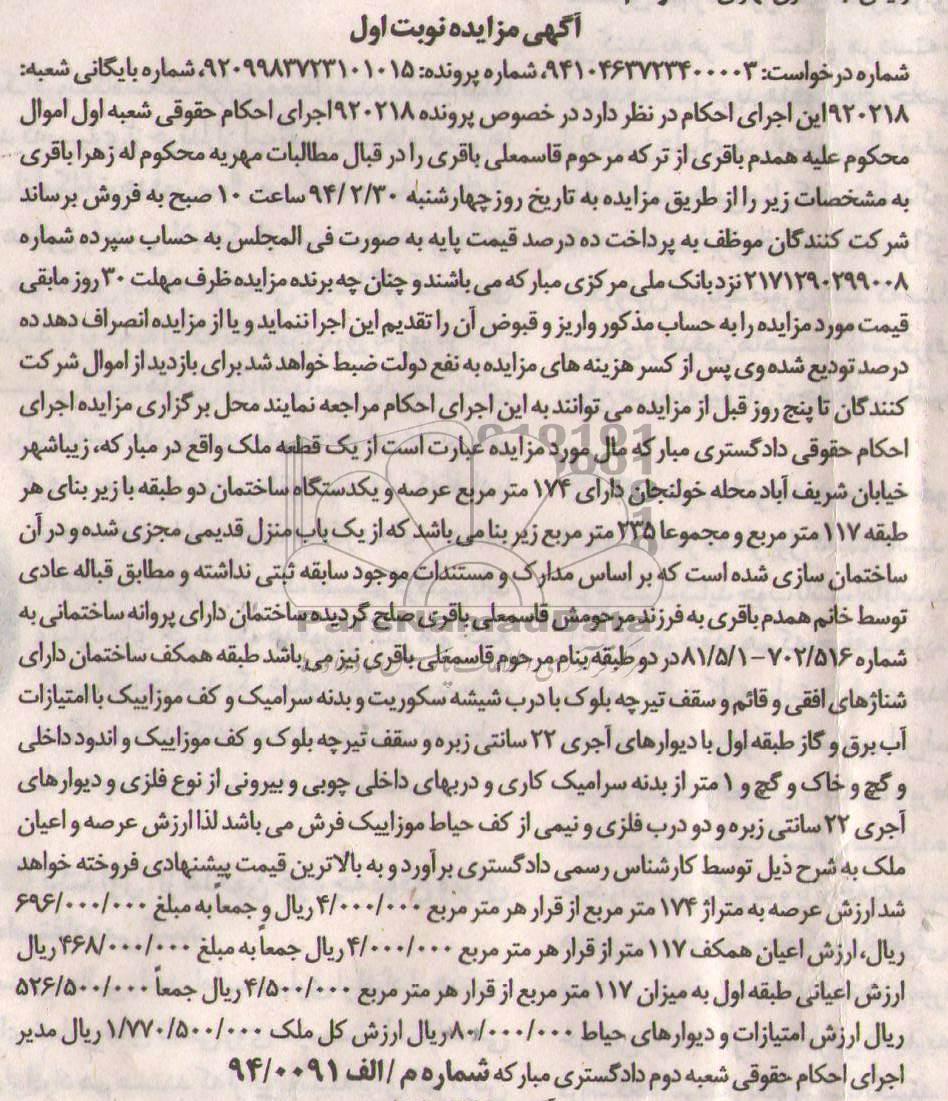 آگهی مزایده نوبت اول
شماره درخواست: ۹۴۱۰۴۶۳۷۲۳۴۰۰۰۰۳، شماره پرونده: ۹۲۰۹۹۸۳۷۲۳۱۰۱۰۱۵، شماره بایگانی شعبه:
۹۲۰۲۱۸این اجرای احکام در نظر دارد در خصوص پرونده ۹۲۰۲۱۸اجرای احکام حقوقی شعبه اول اموال
محکوم علیه همدم باقری از ترکه مرحوم قاسمعلی باقری را در قبال مطالبات مهریه محکوم له زهرا باقری
به مشخصات زیر را از طریق مزایده به تاریخ روز چهارشنبه ۹۴/۲/۳۰ ساعت ۱۰ صبح به فروش برساند
شرکت کنندگان موظف به پرداخت ده درصد قیمت پایه به صورت فی المجلس به حساب سپرده شماره
۲۱۷۱۲۹۰۲۹۹۰۰۸ نزد بانک ملی مرکزی مبارکه می باشند و چنان چه برنده مزایده ظرف مهلت ۳۰ روز مابقی
قیمت مورد مزایده را به حساب مذکور واریز و قبوض آن را تقدیم این اجرا ننماید و یا از مزایده انصراف دهد ده
درصد تودیع شده وی پس از کسر هزینه های مزایده به نفع دولت ضبط خواهد شد برای بازدید از اموال شرکت
کنندگان تا پنج روز قبل از مزایده می توانند به این اجرای احکام مراجعه نمایند محل برگزاری مزایده اجرای
احکام حقوقی دادگستری مبارکه مال مورد مزایده عبارت است از یک قطعه ملک واقع در مبارکه، زیباشهر
خیابان شریف آباد محله خولنجان دارای ۱۷۴ متر مربع عرصه و یکدستگاه ساختمان دو طبقه با زیر بنای هر
طبقه ۱۱۷ متر مربع و مجموعا ۲۳۵ متر مربع زیر بنا می باشد که از یک باب منزل قدیمی مجزی شده و در آن
ساختمان سازی شده است که بر اساس مدارک و مستندات موجود سابقه ثبتی نداشته و مطابق قباله عادی
توسط خانم همدم باقری به فرزند مرحومش قاسمعلی باقری صلح گردیده ساختمان دارای پروانه ساختمانی به
شماره ۷۰۲/۵۱۶ - ۸۱/۵/۱ در دو طبقه بنام مرحوم قاسمعلی باقری نیز می باشد طبقه همکف ساختمان دارای
شناژهای افقی و قائم و سقف تیرچه بلوک با درب شیشه سکوریت و بدنه سرامیک و کف موزاییک با امتیازات
آب برق و گاز طبقه اول با دیوارهای آجری ۲۲ سانتی زبره و سقف تیرچه بلوک و کف موزاییک و اندود داخلی
و گچ و خاک و گچ و ۱ متر از بدنه سرامیک کاری و دربهای داخلی چوبی و بیرونی از نوع فلزی و دیوارهای
آجری ۲۲ سانتی زبره و دو درب فلزی و نیمی از کف حیاط موزاییک فرش می باشد لذا ارزش عرصه و اعیان
ملک به شرح ذیل توسط کارشناس رسمی دادگستری برآورد و به بالاترین قیمت پیشنهادی فروخته خواهد
شد ارزش عرصه به متراژ ۱۷۴ متر مربع از قرار هر متر مربع ۴/۰۰۰/۰۰۰ ریال و جمعاً به مبلغ ۶۹۶/۰۰۰/۰۰۰
ریال، ارزش اعیان همکف ۱۱۷ متر از قرار هر متر مربع ۴/۰۰۰/۰۰۰ ریال جمعاً به مبلغ ۴۶۸/۰۰۰/۰۰۰ ریال
ارزش اعیانی طبقه اول به میزان ۱۱۷ متر مربع از قرار هر متر مربع ۴/۵۰۰/۰۰۰ ریال جمعاً ۵۲۶/۵۰۰/۰۰۰
ریال ارزش امتیازات و دیوارهای حیاط ۸۰/۰۰۰/۰۰۰ریال ارزش کل ملک ۱/۷۷۰/۵۰۰/۰۰۰ ریال مدیر
اجرای احکام حقوقی شعبه دوم دادگستری مبارکه شماره م / الف ۹۴/۰۰۹۱